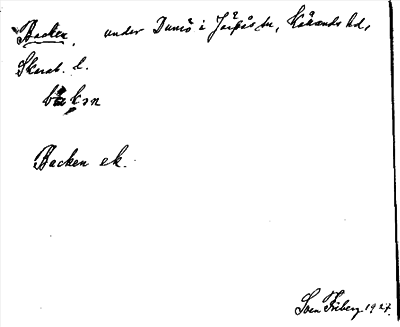 Backen, under Dunö i Järpås sn, Kålands hd,
Skarab. l.
bakən
Backen ek.
Sven Friberg 1927.